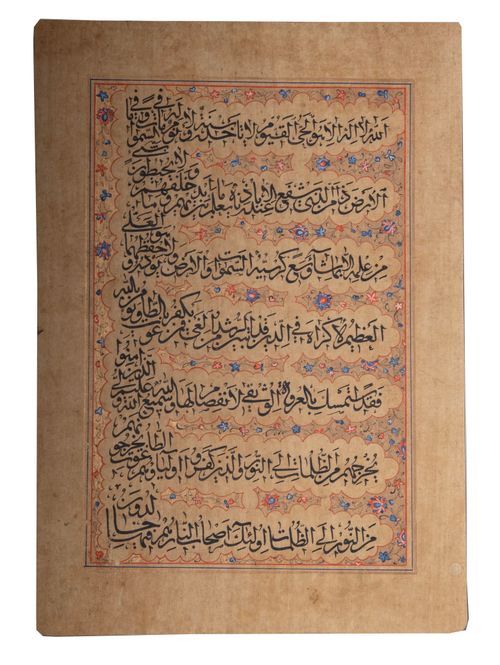 الله لا اله الا هو الحي القيوم لا تاخذه سنة ولا نوم له ما في السموات وما في
الارض من ذا الذي يشفع عنده الا باذنه يعلم ما بين ايديهم وما خلفهم ولا يحيطون بشيء
من علمه الا بما شاء وسع كرسيه السموات والارض ولا يؤده حفظهما وهو العلي
العظيم لا اكراه في الدين قد تبين الرشد من الغي فمن يكفر بالطاغوت ويؤمن بالله
فقد استمسك بالعروة الوثقى لا انفصام لها والله سميع عليم الله ولي الذين امنوا
يخرجهم من الظلمات الى النور والذين كفروا اولياؤهم الطاغوت يخرجونهم
من النور الى الظلمات اولئك اصحاب النار هم فيها خالدون